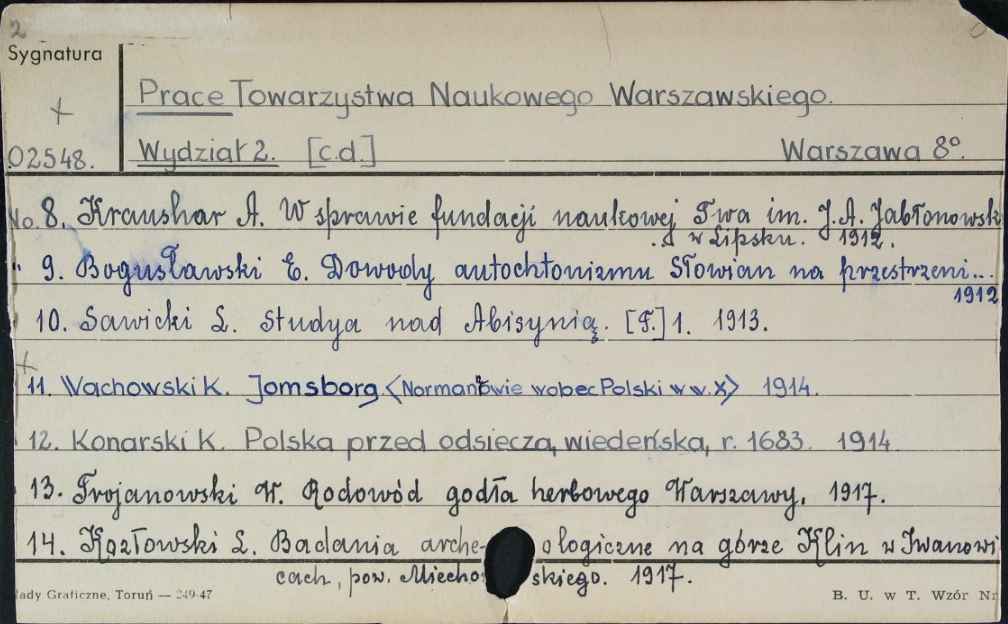 2
Sygnatura
+
02548.
Prace Towarzystwa Naukowego Warszawskiego.
Wydział 2. [c.d.] Warszawa 8°.
No. 8. Kraushar A. W sprawie fundacji naukowej Twa im. J.A. Jabłonowsk
w Lipsku. 1912.
" 9. Bogusławski E. Dowody autochtonizmu Słowian na przestrzeni...
1912
10. Sawicki L. Studya nad Abisynią. [T.] 1. 1913.
+
11. Wachowski K. Jomsborg <Normanowie wobec Polski w w. X> 1914.
12. Konarski K. Polska przed odsieczą wiedeńską r. 1683. 1914.
13. Trojanowski W. Rodowód godła herbowego Warszawy. 1917.
14. Kozłowski L. Badania arche- ologiczne na górze Klin w Iwanowi
cach, pow. Miecho skiego. 1917.
łady Graficzne, Toruń — 249-47
B. U. w T. Wzór Nr